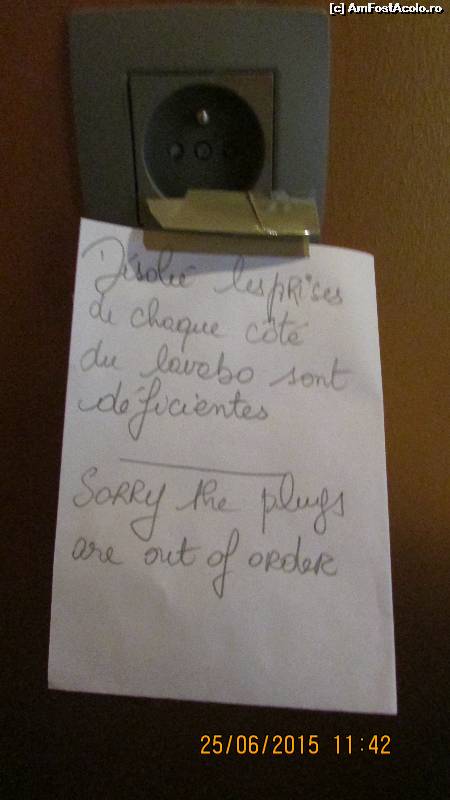 [c] AmFostAcolo.ro
Désolé les prises
de chaque côté
du lavabo sont
déficientes
Sorry the plugs
are out of order
25/06/2015 11:42